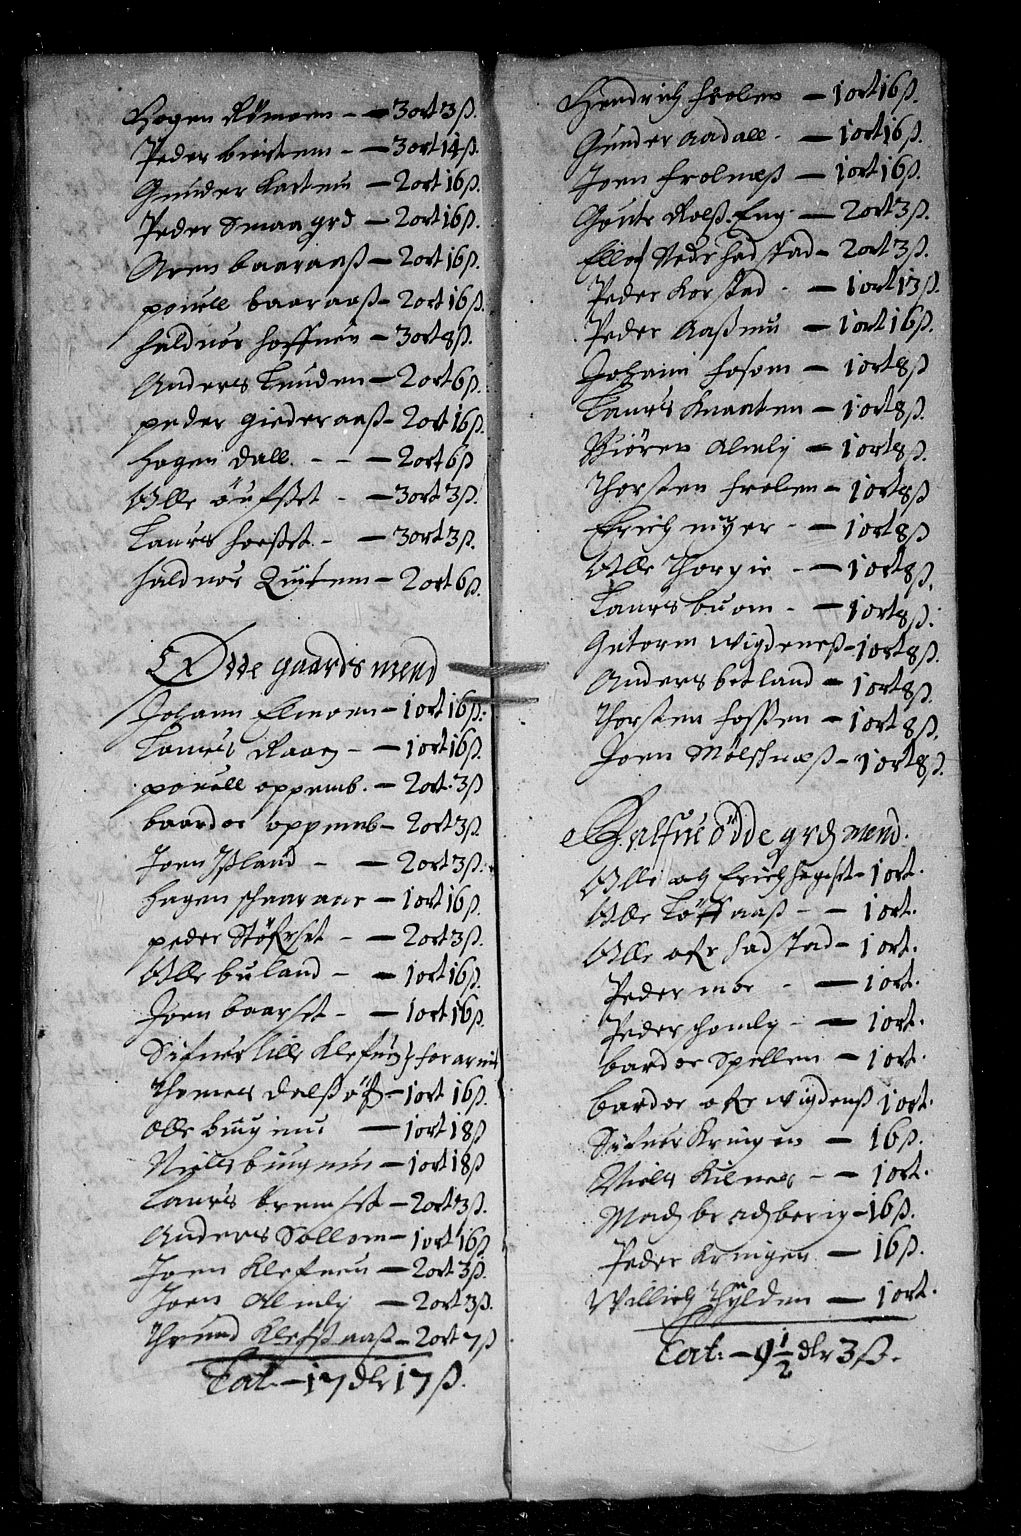 Hogen Römoen - - 3 ort 3 ß.
Peder biertem - - 3 ort 14 ß.
Gunder Kartnu - 2 ort 16 ß.
Peder Smaagrd - 2 ort 16 ß.
Aren baaraaß - 2 ort 16 ß.
pouell baaraaß - 2 ort 16 ß.
haldnor hoffnen - 3 ort 8 ß.
Anders Lunden - 2 ort 6 ß.
peder giederaaß - 2 ort 16 ß.
Hagen Dall. - - - 2 ort 6 ß
Olle öufset - - 3 ort 3 ß.
Laurs horset. - - 3 ort 3 ß.
haldnor Quitem - 2 ort 6 ß.
Ödde gaards mend
Johann Elmoen - 1 ort 16 ß.
Laurs Raag - - 1 ort 16 ß.
pouell oppemb. - 2 ort. 3 ß
baardoe oppemb - 2 ort 3 ß
Joen Ißland - - 2 ort 3 ß.
hagen schaaraas - 1 ort 16 ß.
peder Störset - - 2 ort 3 ß.
Olle buland - - 1 ort 16 ß.
Joen baarset - - 1 ort 16 ß.
Sifuer lille Klefue for armit
Thomes Dalß - 1 ort 16 ß.
Olle buignu - 1 ort 18 ß
Niells buignu - 1 ort 18 ß
Laurs bremset - 2 ort 3 ß.
Anders Sollem - 1 ort 16 ß
Joen Klefneu - 2 ort 3 ß.
Joen Almly - 2 ort 3 ß.
Thrund Klefstaaß - 2 ort 7 ß
Lat. - 17 dlr 17 ß.
Hendrich frolen - 1 ort 16 ß.
Gunder Aadall - - 1 ort 16 ß.
Joen frolnæß - 1 ort 16 ß.
Gönte Rolß Eng - 2 ort 3 ß.
Ellef Nedr hadstad - 2 ort 3 ß.
Peder Korstad - - 1 ort 13 ß.
Peder Aaßmu - 1 ort 16 ß.
Johann fosom - 1 ort 8 ß
Laurs Knaaten - 1 ort 8 ß.
Biören Almly - 1 ort 8 ß.
Thorsten frolen - 1 ort 8 ß
Erich nyer - - 1 ort 8 ß
Olle Thorgie - - 1 ort 8 ß.
Laurs buom - - 1 ort 8 ß.
Gutorm Wigdeneß - 1 ort 8 ß.
Anders betland - 1 ort 8 ß.
Thorsten fossen - 1 ort 8 ß.
Joen Mölschneß - 1 ort 8 ß.
Halfue ödde grds mend.
Olle og Erich hegset - 1 ort.
Olle Löffaaß - - 1 ort.
Olle ofr hadstad - 1 ort.
Peder moe - - 1 ort.
Peder homly - - 1 ort.
bardoe Spellen - 1 ort.
bardoe ofr wigdenß 1 ort.
Sifuer Kringen - 16 ß.
Niels Kilnes - - 1 ort.
Mads bradsberig - 16 ß.
Peder Kringen - 16 ß.
Willich Thylden - 1 ort.
Lat: - 9 1/2 dlr 3 ß.